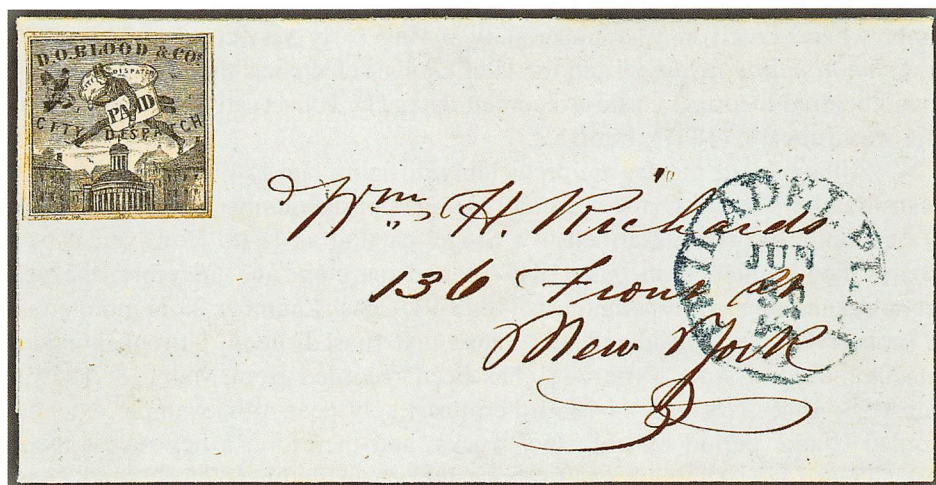 D.O. BLOOD & COS
CITY DISPATCH
PAID
CITY DESPATCH
Wm H. Richards
136 Front St
New York
PHILADELPHIA
JUN